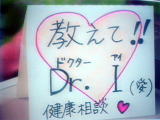 教えて!!
ドクター アイ
Dr. I(愛)
健康相談